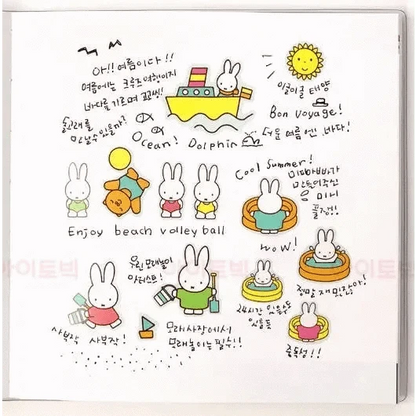 아!! 여름이다!!
여름에는 크루즈여행이지
바다를 가르며 고고씽!
돌고래를
만날수 있을까?
Ocean! Dolphin
이글이글 태양
Bon Voyage!
더운 여름엔 바다!
Cool Summer!
미피아빠가
만들어주신
미니
풀장!!
Enjoy beach volleyball
WOW!
우린 모래놀이
아티스트!
사부작 사부작!
모래사장에서
모래놀이는 필수!!
24시간 있을수도
있을듯
정말 재밌잖아!
중독성!!
아이트빅